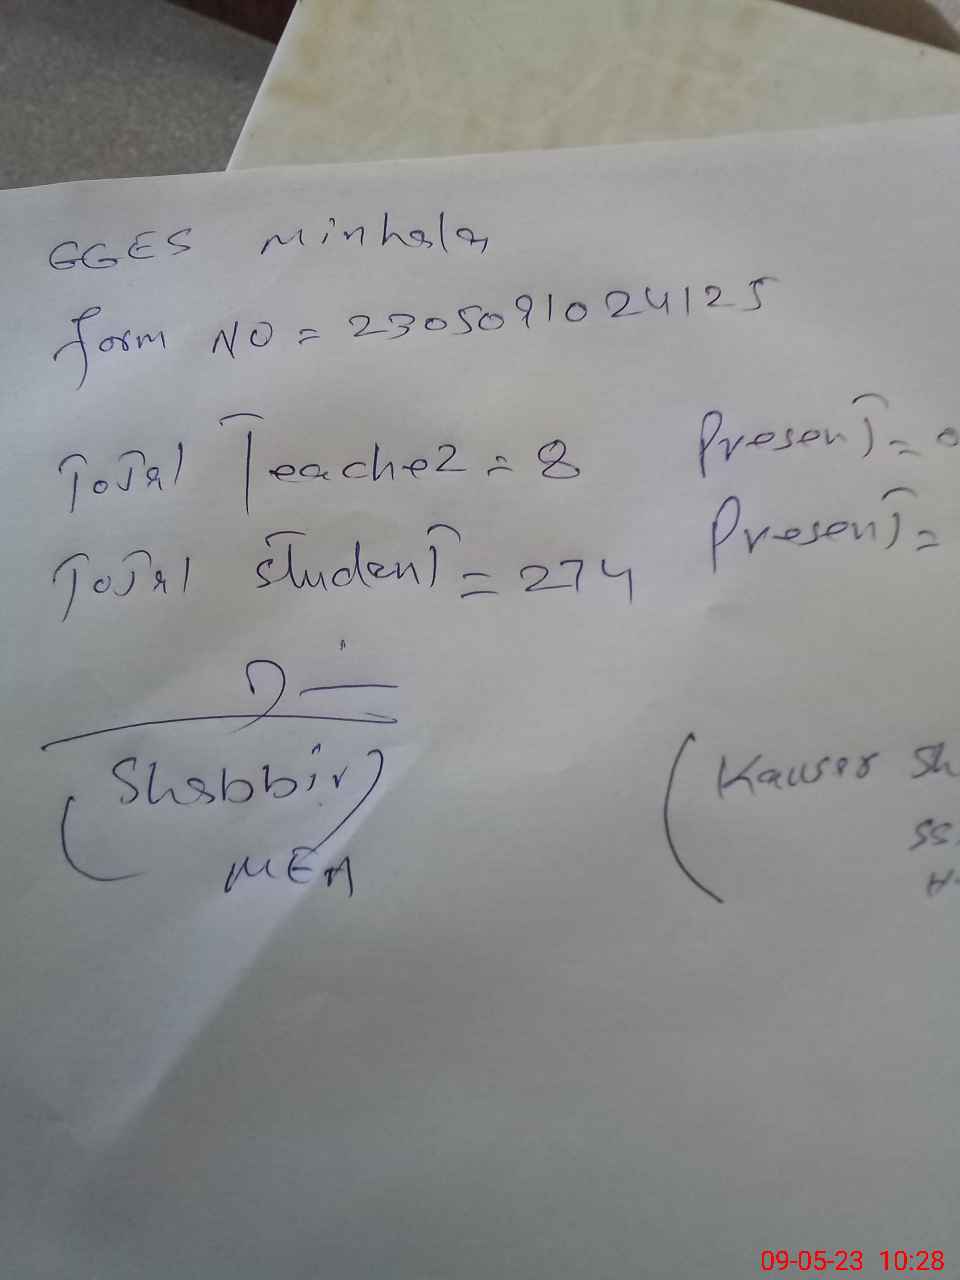 GGES Minhala
form NO = 2305091024125
Total Teacher = 8 Present =
Total student = 274 Present =
(Shabbir)
MEA
(Kauser Sh
SS
H
09-05-23 10:28